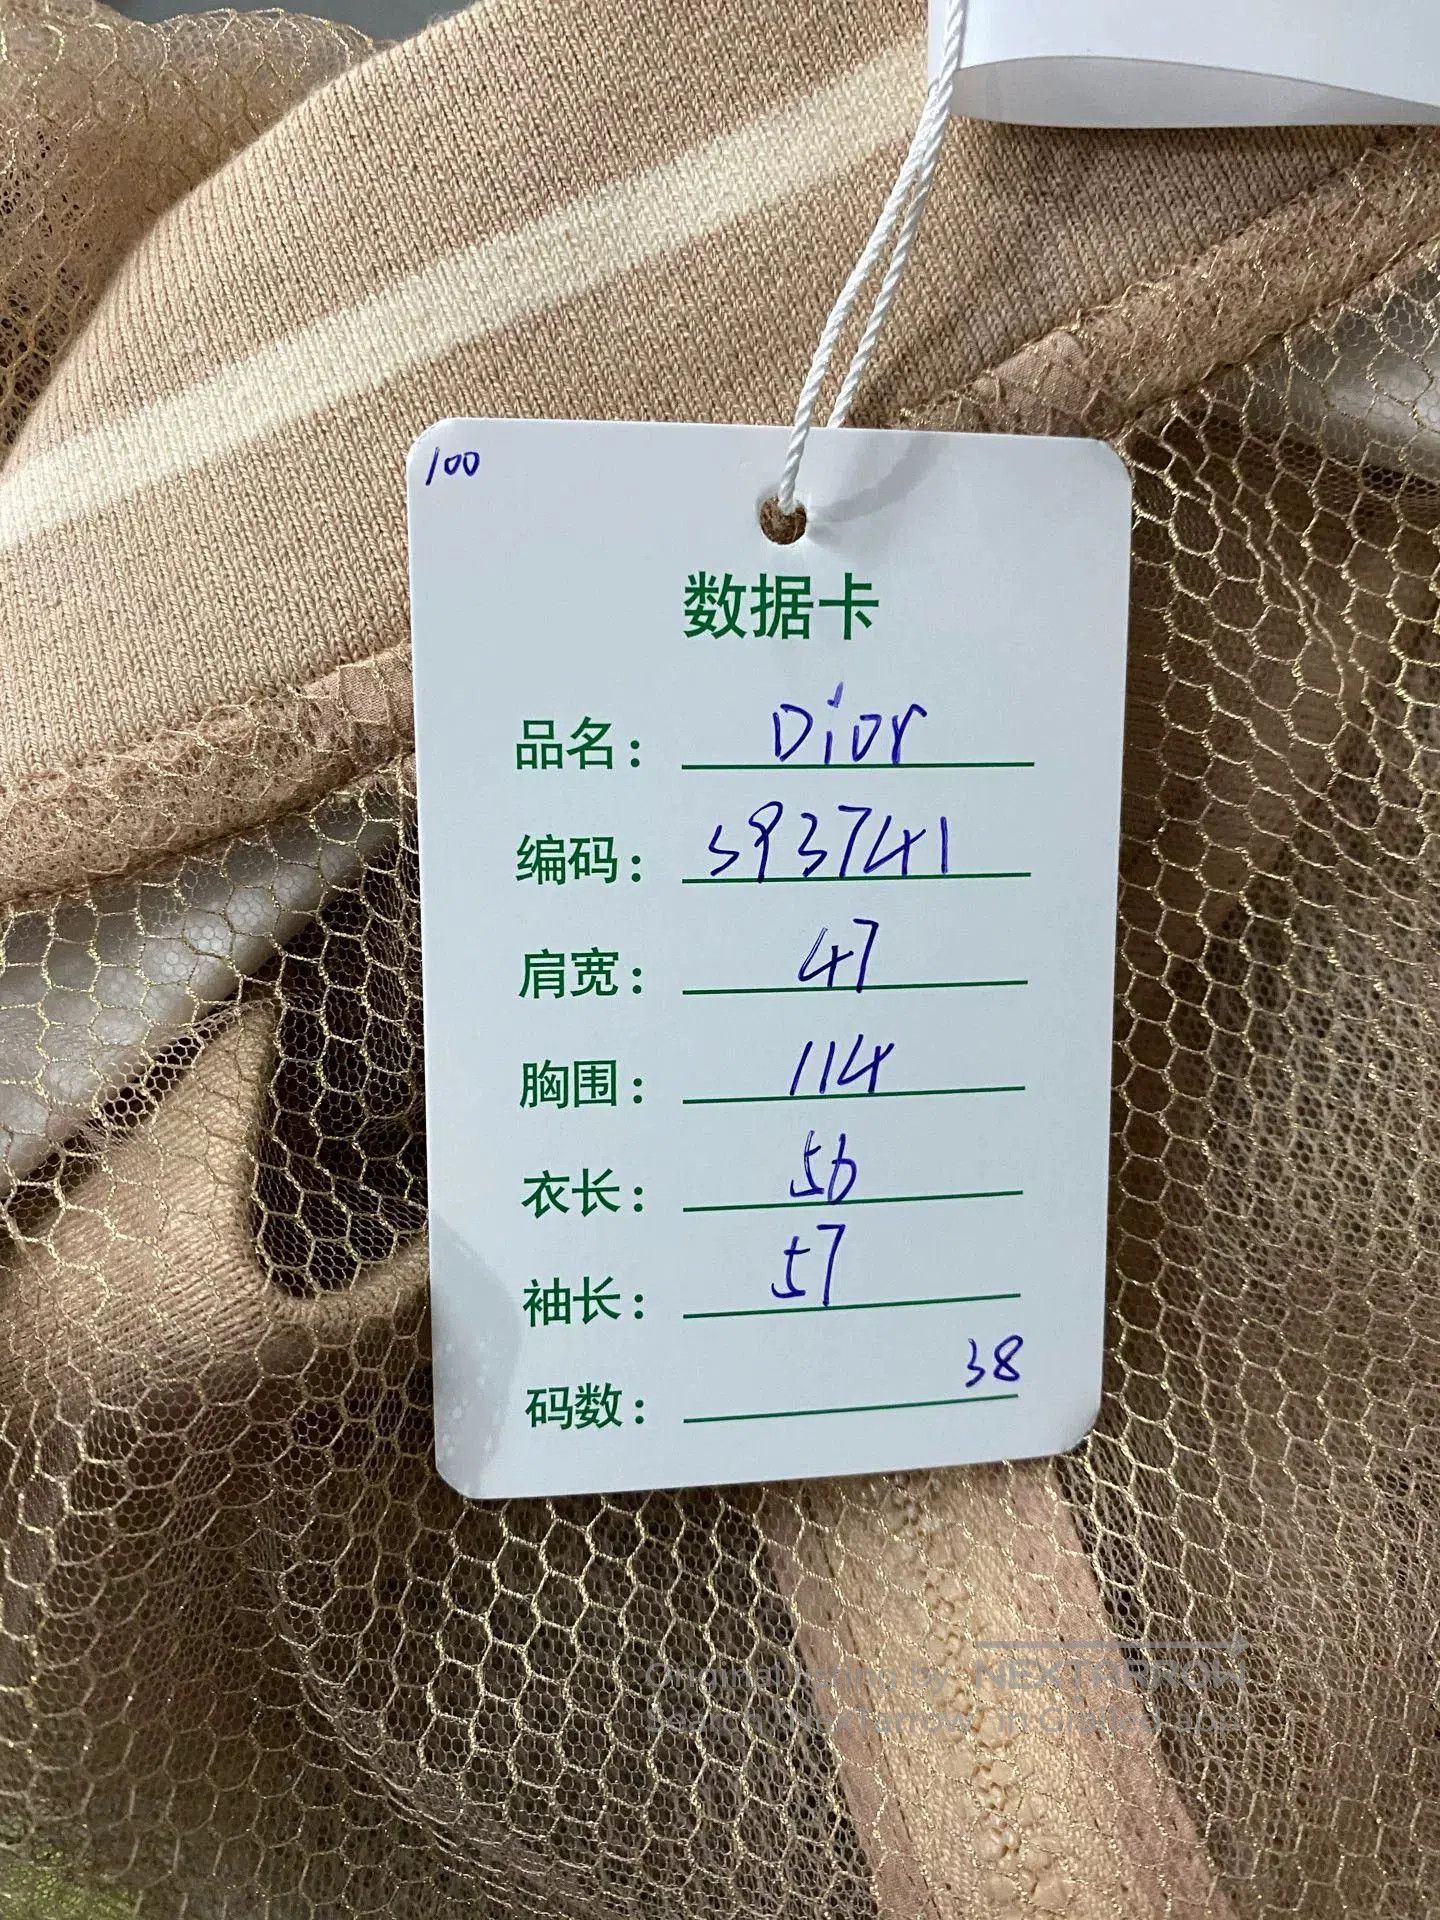 100
数据卡
品名: Dior
编码: 593741
肩宽: 47
胸围: 114
衣长: 56
袖长: 57
码数: 38
Original listing by NEXTARROW
Search "NexTarrow" in Grailed app!